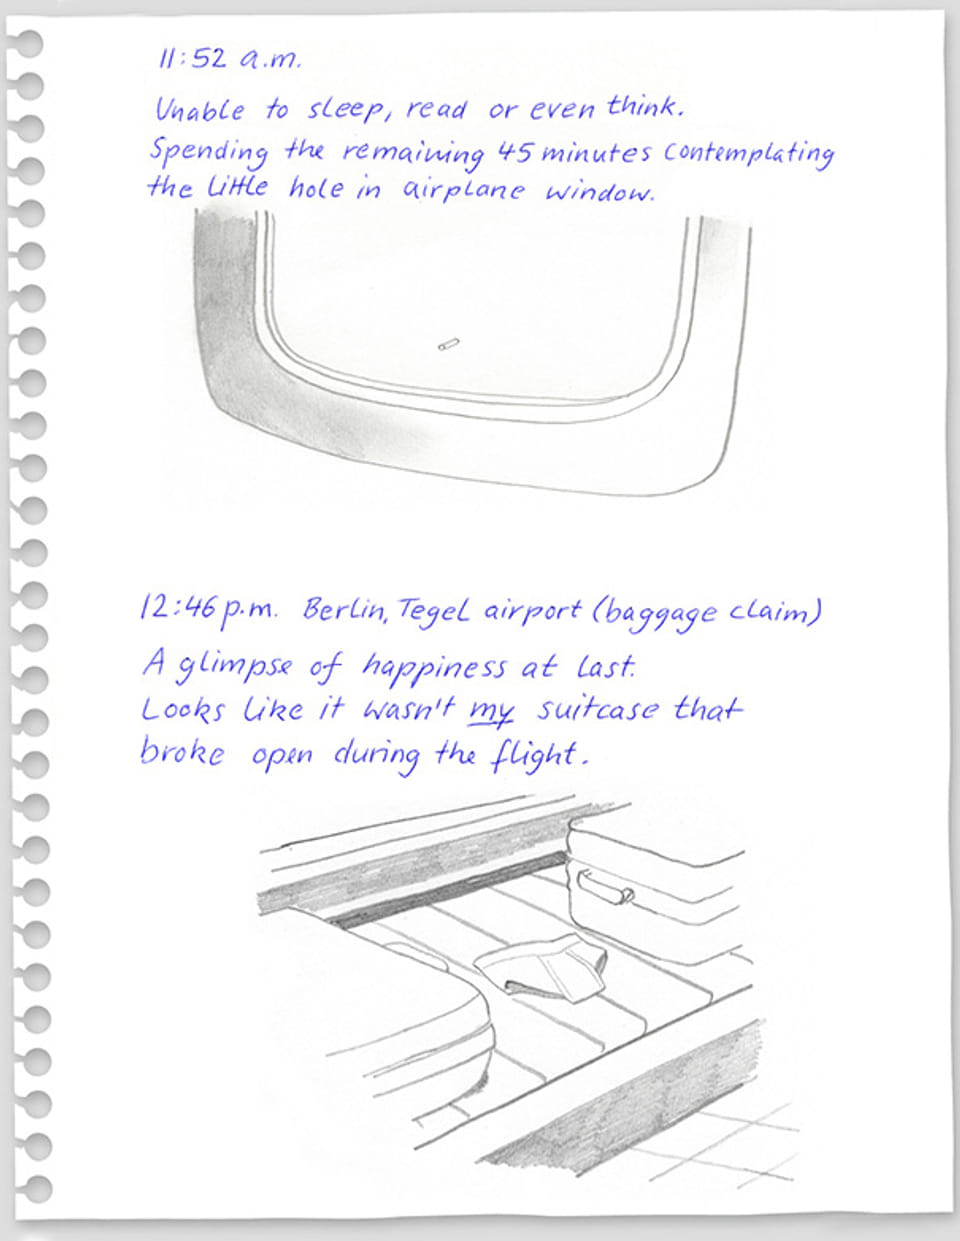 11:52 a.m.
Unable to sleep, read or even think.
Spending the remaining 45 minutes contemplating
the little hole in airplane window.
12:46 p.m. Berlin, Tegel airport (baggage claim)
A glimpse of happiness at last.
Looks like it wasn't my suitcase that
broke open during the flight.